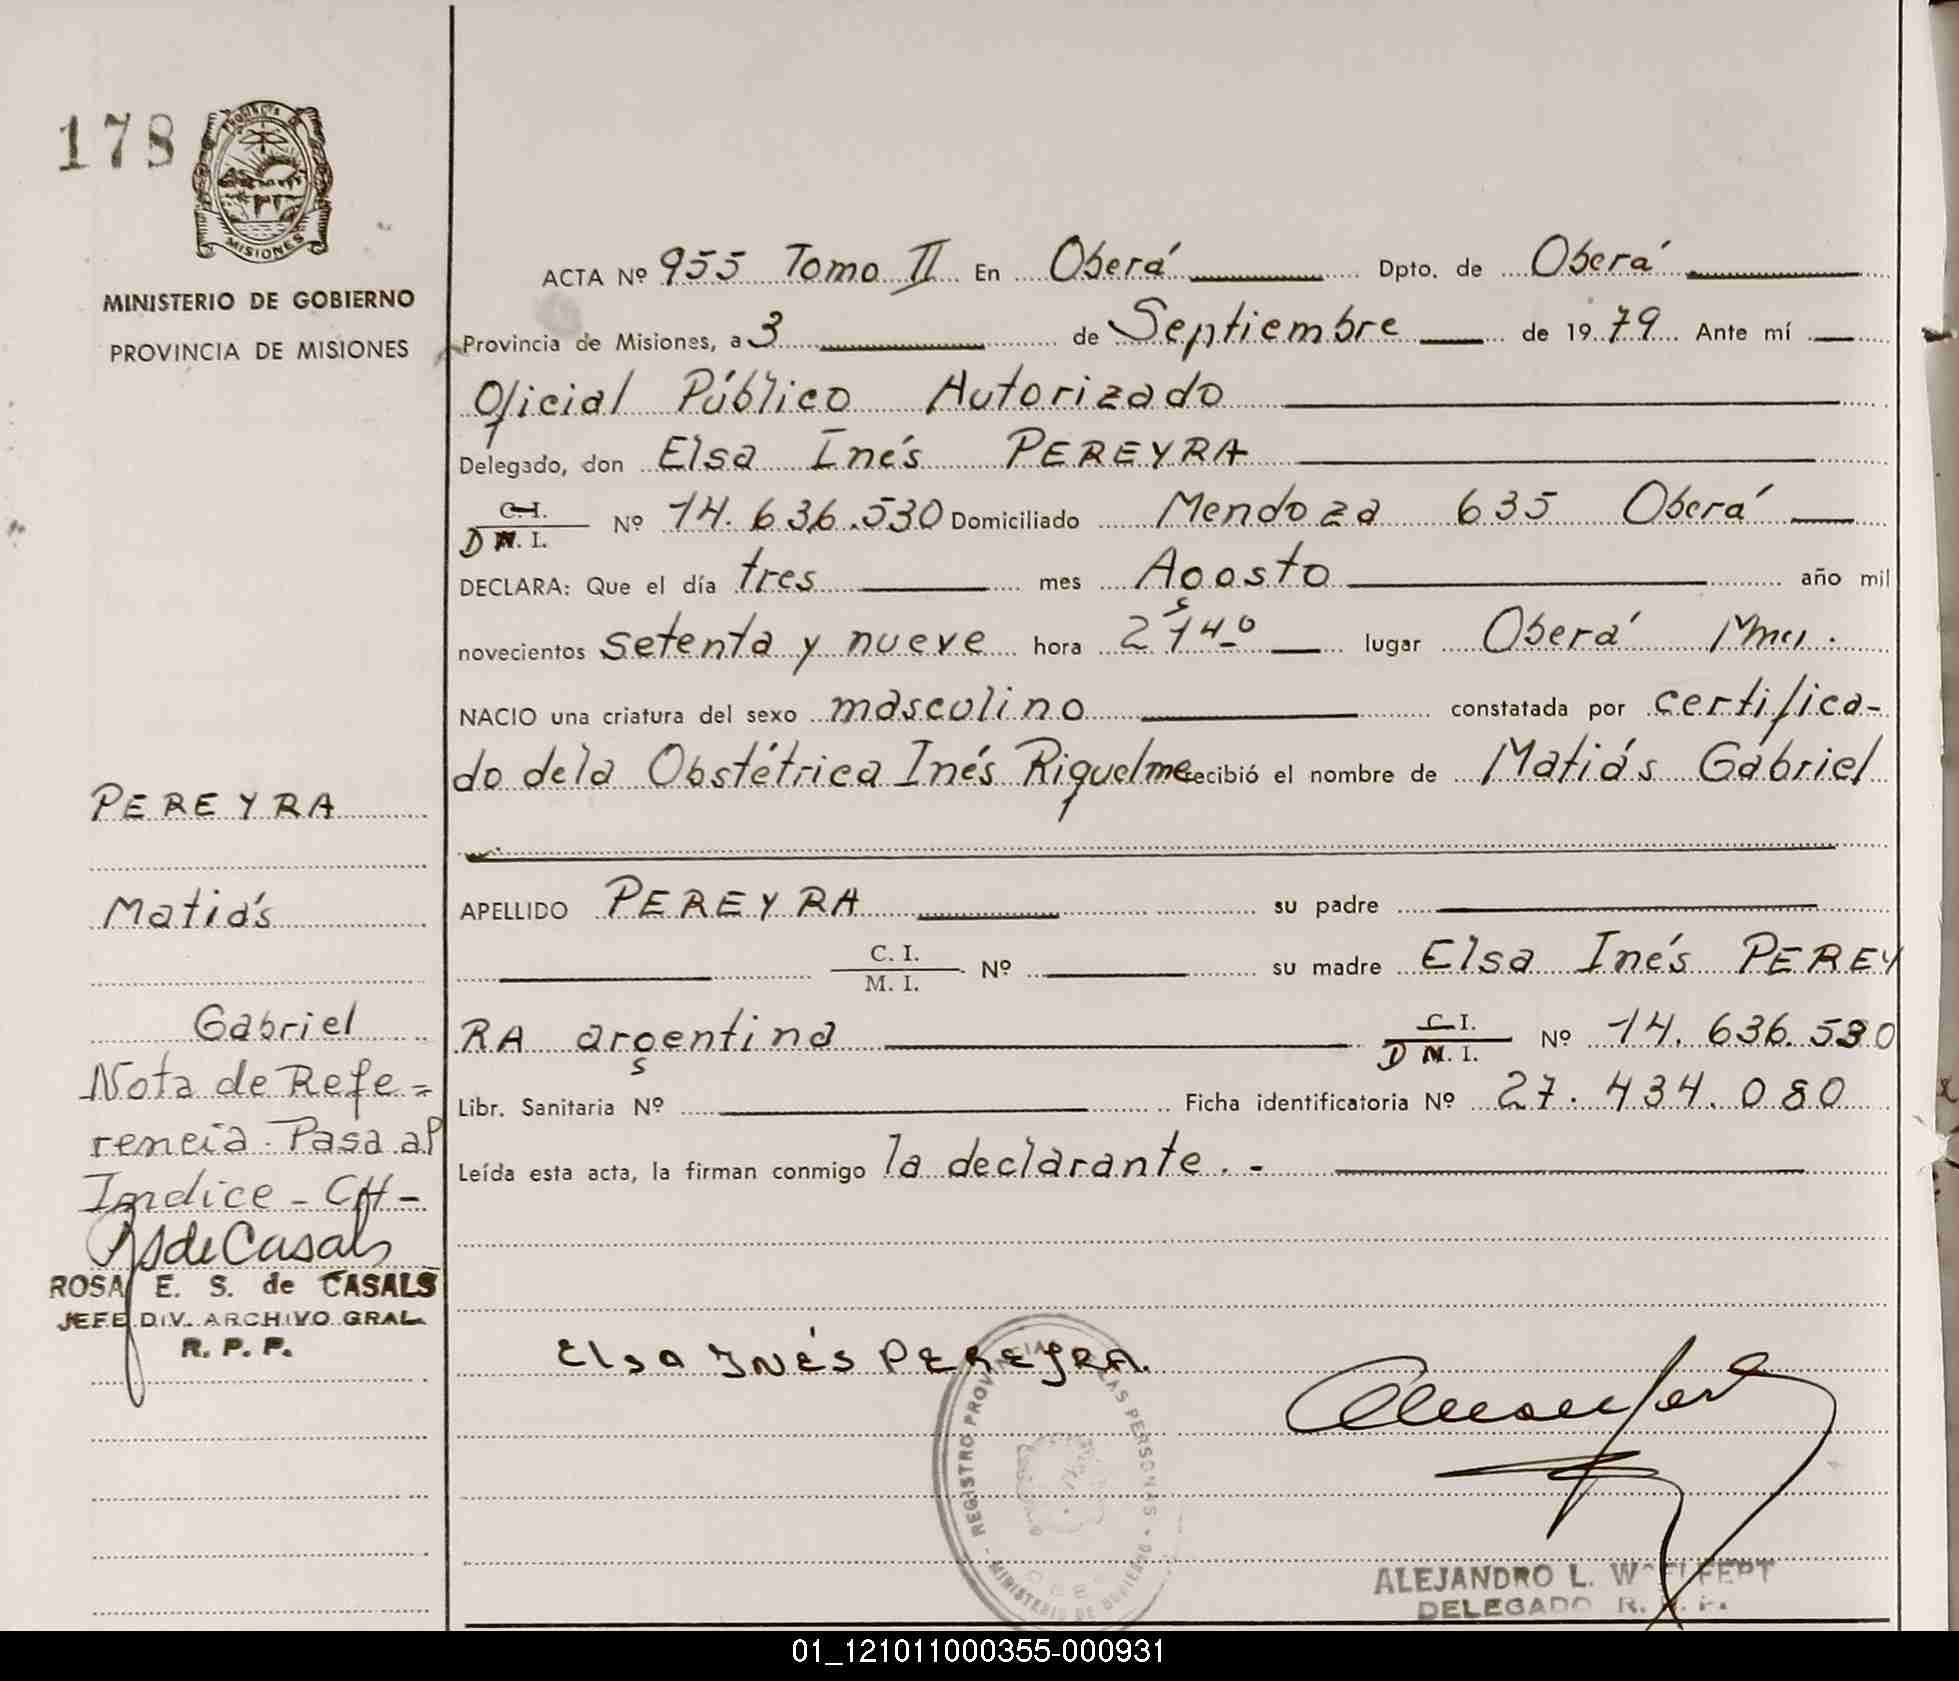 178
PROVINCIA DE
MISIONES
MINISTERIO DE GOBIERNO
PROVINCIA DE MISIONES
ACTA Nº 955 Tomo II En Oberá Dpto. de Oberá
Provincia de Misiones, a 3 de Septiembre de 1979 Ante mí
Oficial Público Autorizado
Delegado, don Elsa Inés PEREYRA
C.I.
D M. I. Nº 14.636.530 Domiciliado Mendoza 635 Oberá
DECLARA: Que el día tres mes Agosto año mil
novecientos setenta y nueve hora 21 40 lugar Oberá Mnes.
NACIO una criatura del sexo masculino constatada por certifica-
do de la Obstétrica Inés Riquelme recibió el nombre de Matiás Gabriel
APELLIDO PEREYRA su padre
C. I.
M. I. Nº su madre Elsa Inés PEREY
RA argentina C.I.
D M. I. Nº 14.636.530
Libr. Sanitaria Nº Ficha identificatoria Nº 27.434.080
Leída esta acta, la firman conmigo la declarante.-
PEREYRA
Matiás
Gabriel
Nota de Refe=
rencia. Pasa al
Indice - CH-
RSdeCasals
ROSA E. S. de CASALS
JEFE DIV. ARCHIVO GRAL.
R. P. P.
Elsa INÉS PEREYRA.
REGISTRO PROVINCIAL DE LAS PERSONAS
MINISTERIO DE GOBIERNO
ALEJANDRO L. WOELFERT
DELEGADO R. P. P.
01_121011000355-000931